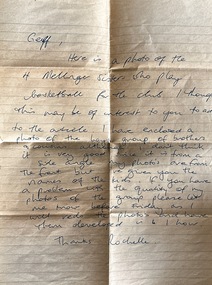 Geoff,
Here is a photo of the
4 Mellinger Sisters who play
basketball for the club. I thought
this may be of interest to you to add
to the article. I have enclosed a
photo of the large group of brothers
I don't think
it is very good from a
side angle. photos are from
the front but I've given you the
names of the kids. If you have
a problem with the quality of my
photos of the group please let
me know before Friday as I
the photos
when developed is 1 hour
Thanks Rochelle